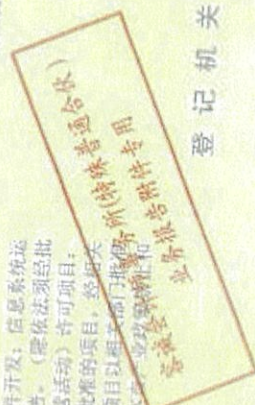 件开发；信息系统运
。（需依法须经批
营活动）许可项目：
批准的项目，经相关
项目以相关部门批准
登记机关
容诚会计师事务所(特殊普通合伙)
业务报告附件专用